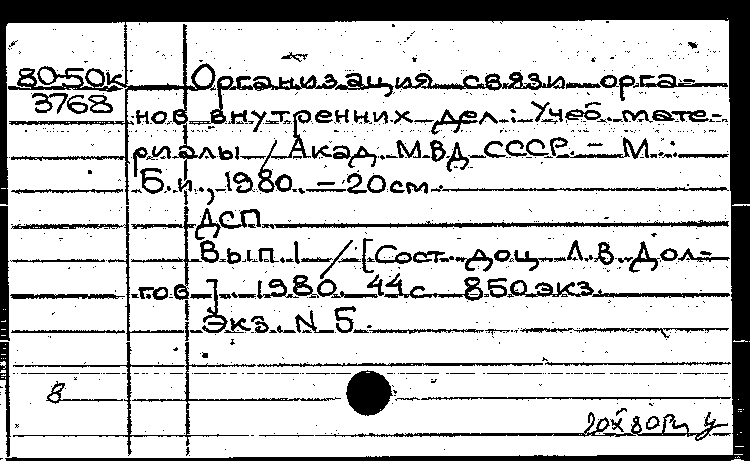 80-50к Организация связи орга-
3768 нов внутренних дел: Учеб. мате-
риалы / Акад. МВД СССР. – М.:
Б.и., 1980. – 20 см.
ДСП
Вып. 1 / [Сост. доц. Л.В. Дол-
гов]. 1980. 44 с. 850 экз.
Экз. N 5.
8